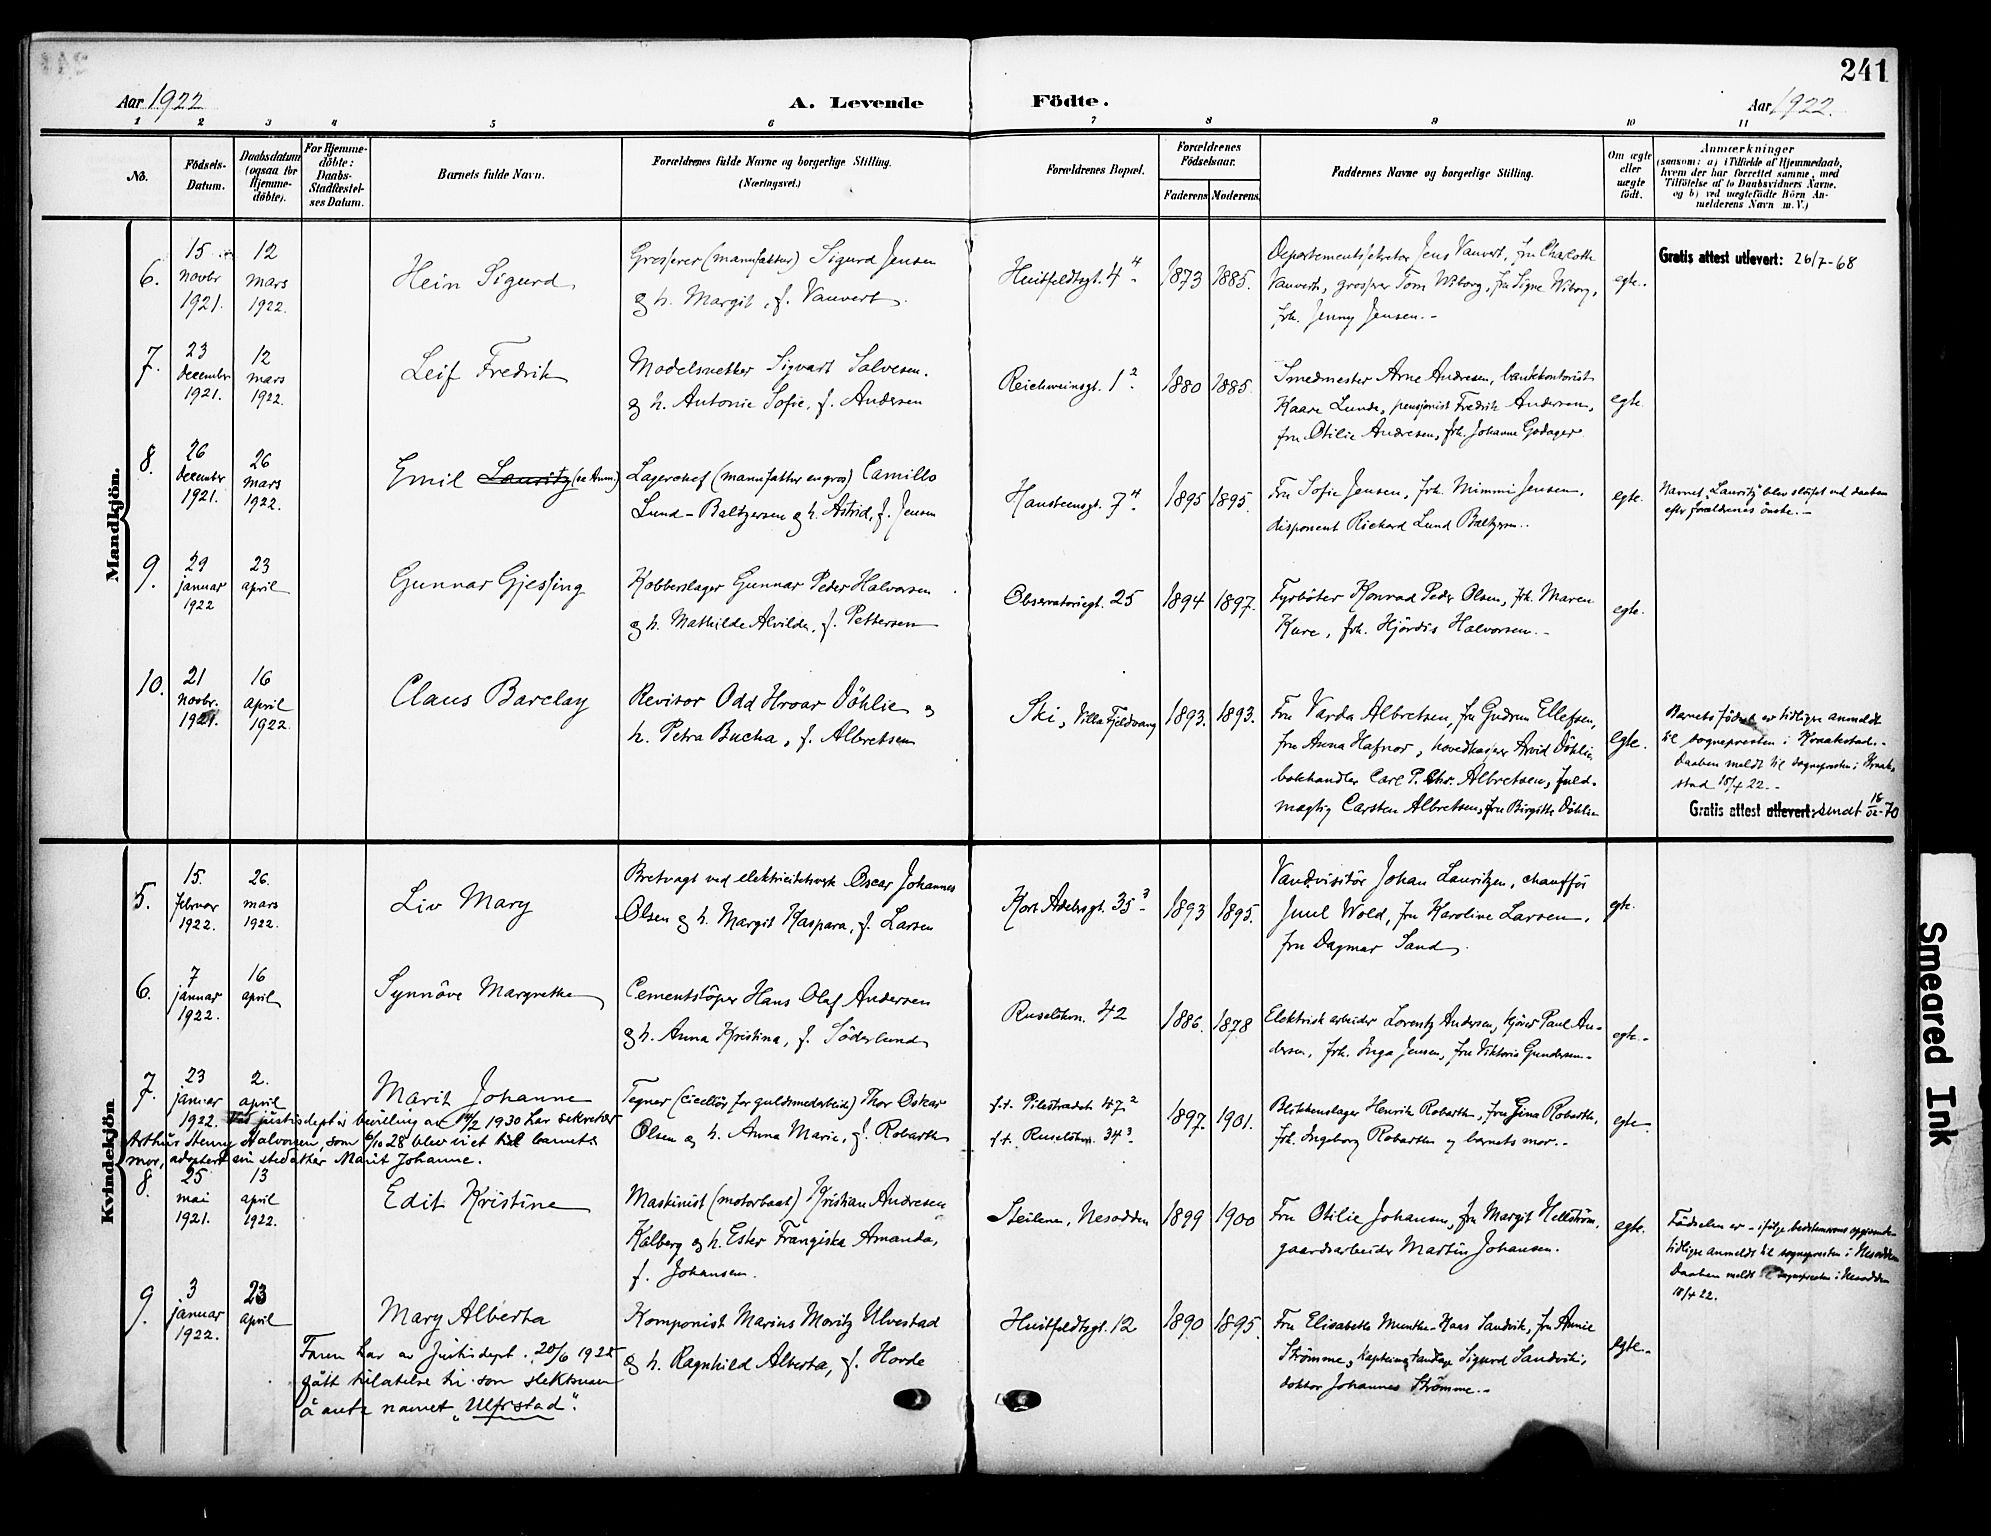 241
Aar 1922
A. Levende
Födte.
Aar 1922.
1 2 3 4 5 6 7 8 9 10 11
No.
Födsels-
Datum.
Daabsdatum
(ogsaa for
Hjemme-
döbte).
For Hjemme-
döbte:
Daabs-
Stadfæstel-
ses Datum.
Barnets fulde Navn.
Forældrenes fulde Navne og borgerlige Stilling.
(Næringsvei.)
Forældrenes Bopæl.
Forældrenes
Födselsaar.
Faderens
Moderens
Faddernes Navne og borgerlige Stilling.
Om ægte
eller
uægte
födt.
Anmærkninger
(saasom: a) i Tilfælde af Hjemmedaab,
hvem der har forrettet samme, med
Tilföielse af to Daabsvidners Navne,
og b) ved uægtefödte Börn An-
melderens Navn m. V.)
Mandkjön.
6.
15
novbr
1921.
12
mars
1922.
Hein Sigurd
Grosserer (manufaktur) Sigurd Jensen
og h. Margit, f. Vauvert.
Huitfeldtsgt. 4 4
1873
1885.
Departementssekretær Jens Vauvert, fru Charlotte
Vauvert, grosserer Tom Wiborg, fru Signe Wiborg,
frk. Jenny Jensen.-
egte.
Gratis attest utlevert: 26/7-68
7.
23
december
1921.
12
mars
1922.
Leif Fredrik
Modelsnekker Sigvart Salvesen.
og h. Antonie Sofie, f. Andersen
Reichweinsgt. 1 2
1880
1885.
Smedmester Arne Andresen, bankkontorist
Kaare Lunde, pensjonist Fredrik Andersen,
fru Otilie Andresen, frk. Johanne Godager
egte.
8.
26
december
1921.
26
mars
1922.
Emil Lauritz (se Anm.)
Lagerchef (manufaktur engros) Camillo
Lund-Baltzersen og h. Astrid, f. Jensen
Hansteensgt. 7 4
1895
1895.
Fru Sofie Jensen, frk. Mimmi Jensen,
disponent Richard Lund Baltzersen..
egte.
Navnet "Lauritz" blev sløifet ved daaben
efter forældrenes önske.-
9.
29
januar
1922
23
april
Gunnar Gjessing
Kobberslager Gunnar Peder Halvorsen
og h. Mathilde Alvilde, f. Pettersen
Observatoriegt. 25
1894
1897.
Fyrböter Konrad Peder Olsen, frk. Maren
Kure, frk. Hjördis Halvorsen.-
egte.
10.
21
novbr.
1921.
16
april
1922.
Claus Barclay
Revisor Odd Hroar Döhlie og
h. Petra Bucha, f. Albretsen
Ski, Villa Fjeldvang
1893.
1893.
Fru Varda Albretsen, fru Gudrun Ellefsen,
fru Anna Hafnor, hovedkasserer Arvid Döhlie
bokhandler Carl P. Chr. Albretsen, fuld-
mægtig Carsten Albretsen, fru Birgitte Döhlen
Egte.
Barnets födsel er tidligere anmeldt
til sognepresten i Kraakstad.-
Daaben meldt til sognepresten i Kraak-
stad 18/4 22.-
Gratis attest utlevert: sendt 16/02-70
Kvindekjön.
5.
15.
februar
1922.
26.
mars
1922.
Liv Mary
Bretvagt ved elektricitetsverk Oscar Johannes
Olsen og h. Margit Kaspara, f. Larsen
Kort Adelersgt. 35 3
1893
1895.
Vandvisitör Johan Lauritzen, chaufför
Juul Wold, fru Karoline Larsen,
fru Dagmar Sand.
egte.
6.
7
januar
1922.
16
april
Synnöve Margrethe
Cementstöper Hans Olaf Andersen
og h. Anna Kristina, f. Söderlund
Ruselökvn. 42
1886.
1878
Elektrisk arbeider Lorentz Andersen, kjörer Paul An-
dersen, frk. Inga Jensen, fru Viktoria Gundersen-
egte.-
7.
23
januar
1922.
2.
april
Marit Johanne
Tegner (ciselör for guldsmedarbeide) Thor Oskar
Olsen og h. Anna Marie, f. Robarth
f.t. Pilestrædet 47 2
f.t. Ruselökvn. 34 3
1897.
1901.
Blikkenslager Henrik Robarth, fru Gina Robarth,
frk. Ingeborg Robarth og barnets mor.-
egte
Ved justisdept's bevilling av 14/2 1930 har sekretær
Arthur Henry Halvorsen, som 6/10 28 blev viet til barnets
mor, adoptert sin stedatter Marit Johanne.
8.
25
mai
1921.
13
april
1922.
Edit Kristine
Maskinist (motorbaat) Kristian Andresen
Kalberg og h. Ester Franziska Amanda,
f. Johansen.
Steilene, Nesodden
1899
1900
Fru Otilie Johansen, fru Margit Hellström,
gaardsarbeider Martin Johansen.
egte.
Födselen er - ifölge bestemorens opgivende
tidligere anmeldt til sognepresten i Nesodden
Daaben meldt til sognepresten i Nesodden
18/4 22.
9.
3
januar
1922.
23
april
Mary Alberta
Komponist Marius Moritz Ulvestad
og h. Ragnhild Alberta, f. Horde
Huitfeldtsgt. 12
1890
1895.
Fru Elisabeth Munthe-Kaas Sandvik, fru Annie
Strömme, kaptein, tandlæge Sigurd Sandvik,
doktor Johannes Strömme.-
Egte.-
Faren har av Justisdept. 20/6 1925
fått tilatelse til som slektsnavn
å anta navnet "Ulfrstad".
Smeared Ink